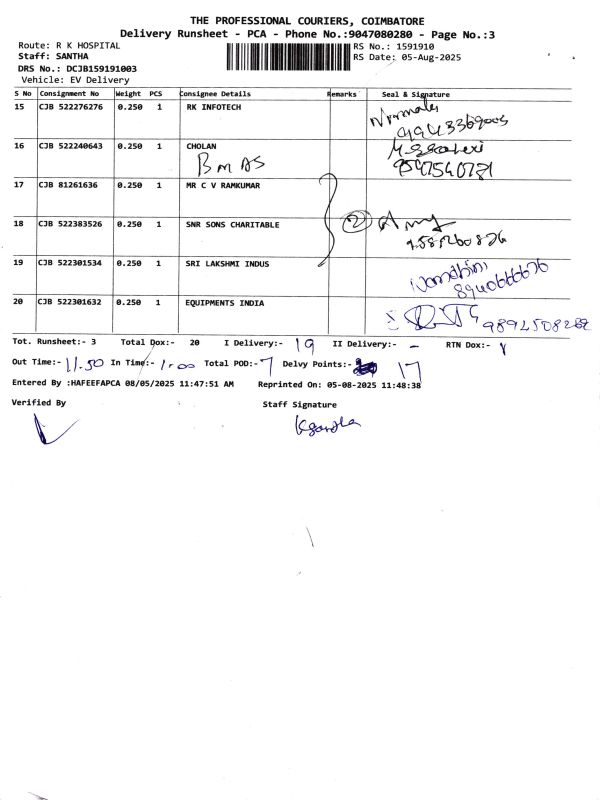 THE PROFESSIONAL COURIERS, COIMBATORE
Delivery Runsheet - PCA - Phone No.:9047080280 - Page No.:3
Route: R K HOSPITAL
Staff: SANTHA
DRS No.: DCJB159191003
Vehicle: EV Delivery
RS No.: 1591910
RS Date: 05-Aug-2025
S No Consignment No Weight PCS Consignee Details Remarks Seal & Signature
15 CJB 522276276 0.250 1 RK INFOTECH
16 CJB 522240643 0.250 1 CHOLAN
BMAS
9597540781
17 CJB 81261636 0.250 1 MR C V RAMKUMAR
18 CJB 522383526 0.250 1 SNR SONS CHARITABLE
2
19 CJB 522301534 0.250 1 SRI LAKSHMI INDUS
20 CJB 522301632 0.250 1 EQUIPMENTS INDIA
Tot. Runsheet:- 3 Total Dox:- 20 I Delivery:- 19 II Delivery:- - RTN Dox:- 1
Out Time:- 11.50 In Time:- 1.00 Total POD:- 7 Delvy Points:- 17
Entered By :HAFEEFAPCA 08/05/2025 11:47:51 AM Reprinted On: 05-08-2025 11:48:38
Verified By Staff Signature